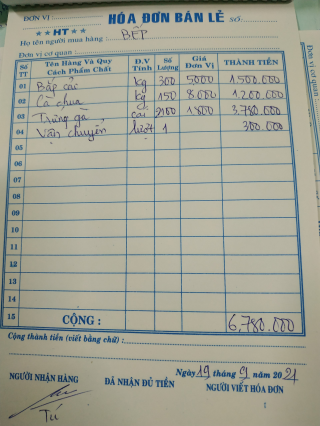 ĐƠN VỊ: HÓA ĐƠN BÁN LẺ SỐ:
★★HT★★
Họ tên người mua hàng BẾP
Đơn vị cơ quan :
Số TT Tên Hàng Và Quy Cách Phẩm Chất Đ.V Tính Số Lượng Giá Đơn Vị THÀNH TIỀN
01 Bắp cải kg 300 5000 1.500.000
02 Cà chua kg 150 8.000 1.200.000
03 Trứng gà cái 2100 1800 3.780.000
04 Vận chuyển lượt 1 300.000
05
06
07
08
09
10
11
12
13
14
15 CỘNG : 6.780.000
Cộng thành tiền (viết bằng chữ) :
Ngày 19 tháng 9 năm 2021
NGƯỜI NHẬN HÀNG ĐÃ NHẬN ĐỦ TIỀN NGƯỜI VIẾT HÓA ĐƠN
Tú